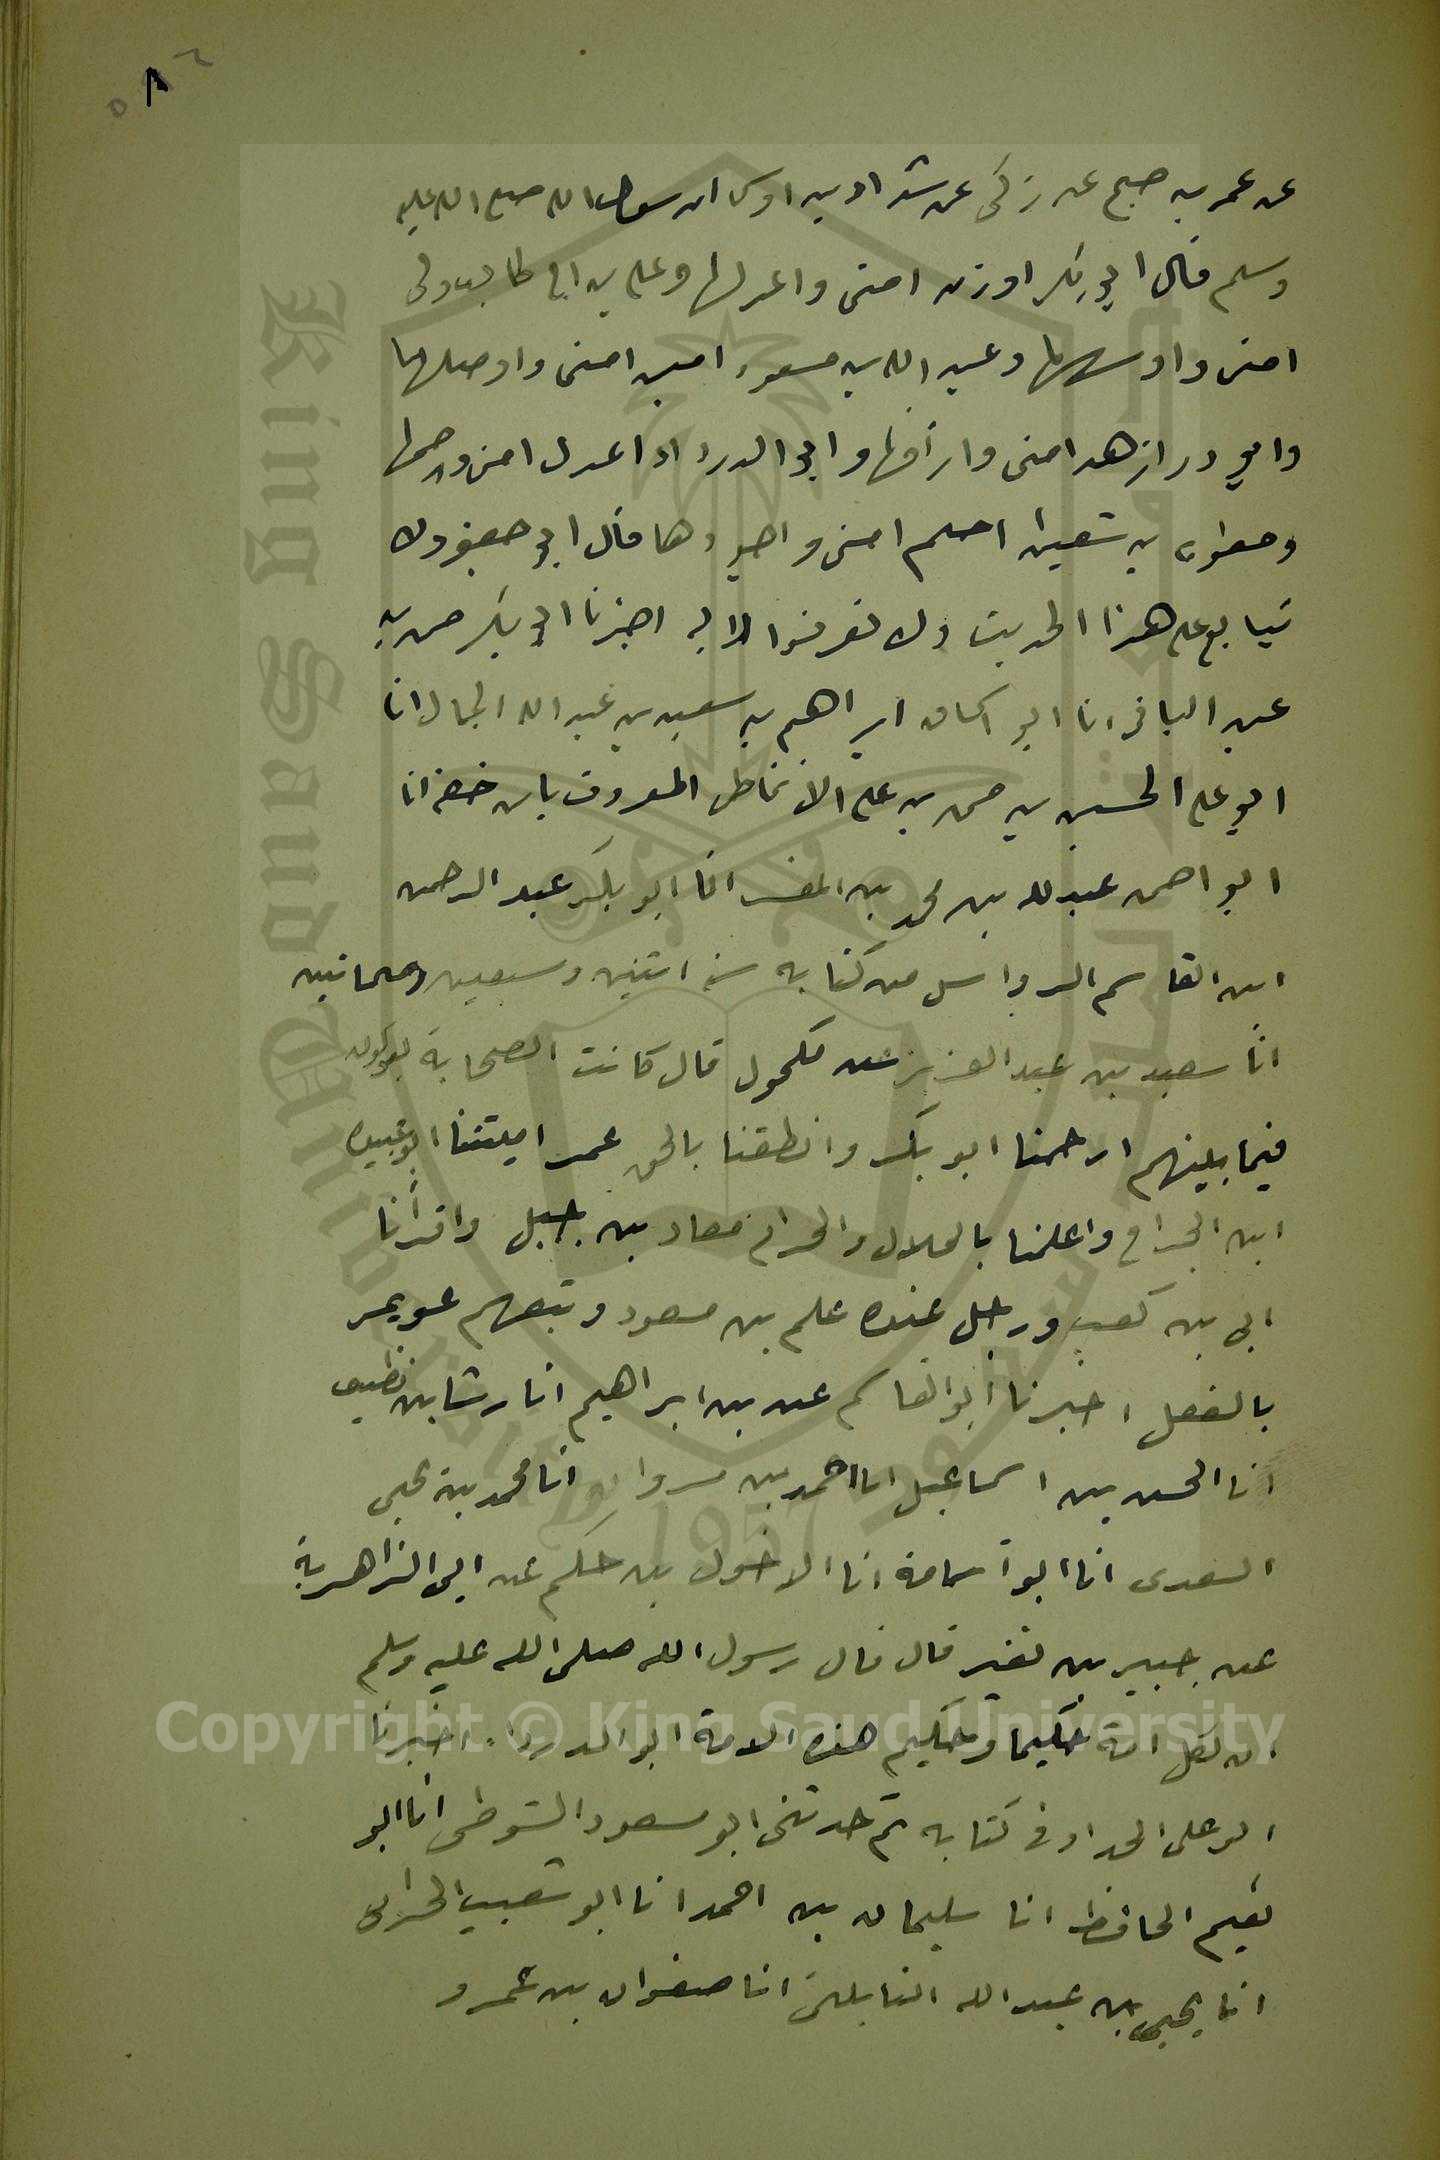 ٥٨٢
عن عمر بن صبح عن زكى عن شداد بن اوس ان رسول الله صلى الله عليه
وسلم قال ابو بكر اوزن امتى واعدلها وعلي بن ابي طالب ولى
امتى واوسمها وعبد الله بن مسعود امين امتى واوصلها
وابو ذر ازهد امتى وارأفها وابو الدرداء اعدل امتى وارحمها
ومعاوية بن سفيان احلم امتى واجودها قال ابو جعفر ولا
يتابع على هذا الحديث ولا تعرفوا الا به اخبرنا ابو بكر محمد بن
عبد الباقى انا ابو اسحاق ابراهيم بن سعيد بن عبد الله الحبال انا
ابو على الحسين بن محمد بن على الانماطى المعروف بابن
ابو احمد عبد لله بن محمد بن المفسر انا ابو بكر عبد الرحمن
ابن القاسم الرواسى من كتابه سنة اثنين وسبعين وثمانين
انا سعيد بن عبد العزيز عن مكحول قال كانت الصحابة يقولون
فيما بينهم ارحمنا ابو بكر وانطقنا بالحق عمر اميننا ابو عبيده
ابن الجراح واعلمنا بالحلال والحرام معاد بن جبل واقرأنا
ابى بن كعب ورجل عنده علم بن مسعود وتبعهم عويمر
بالعقل اخبرنا ابوالقاسم على بن ابراهيم انا رشا بن نظيف
انا الحسن بن اسماعيل انا احمد بن مروان انا محمد بن يحيى
السعدى انا ابو أسامة انا الاخول بن حكيم عن ابى الزاهرية
عن جبير بن نفير قال قال رسول الله صلى الله عليه وسلم
ان لكل امة حكيما وحكيم هذه الامة ابو الدرداء. اخبرنا
ابو على الحداد فى كتابه ثم حدثنى ابو مسعود الشوطى انا ابو
نعيم الحافظ انا سليمان بن احمد انا ابو شعيب الحرانى
انا يحيى بن عبد الله النابلتى انا صفوان بن عمرو
Copyright © King Saud University
King Saud University
1957